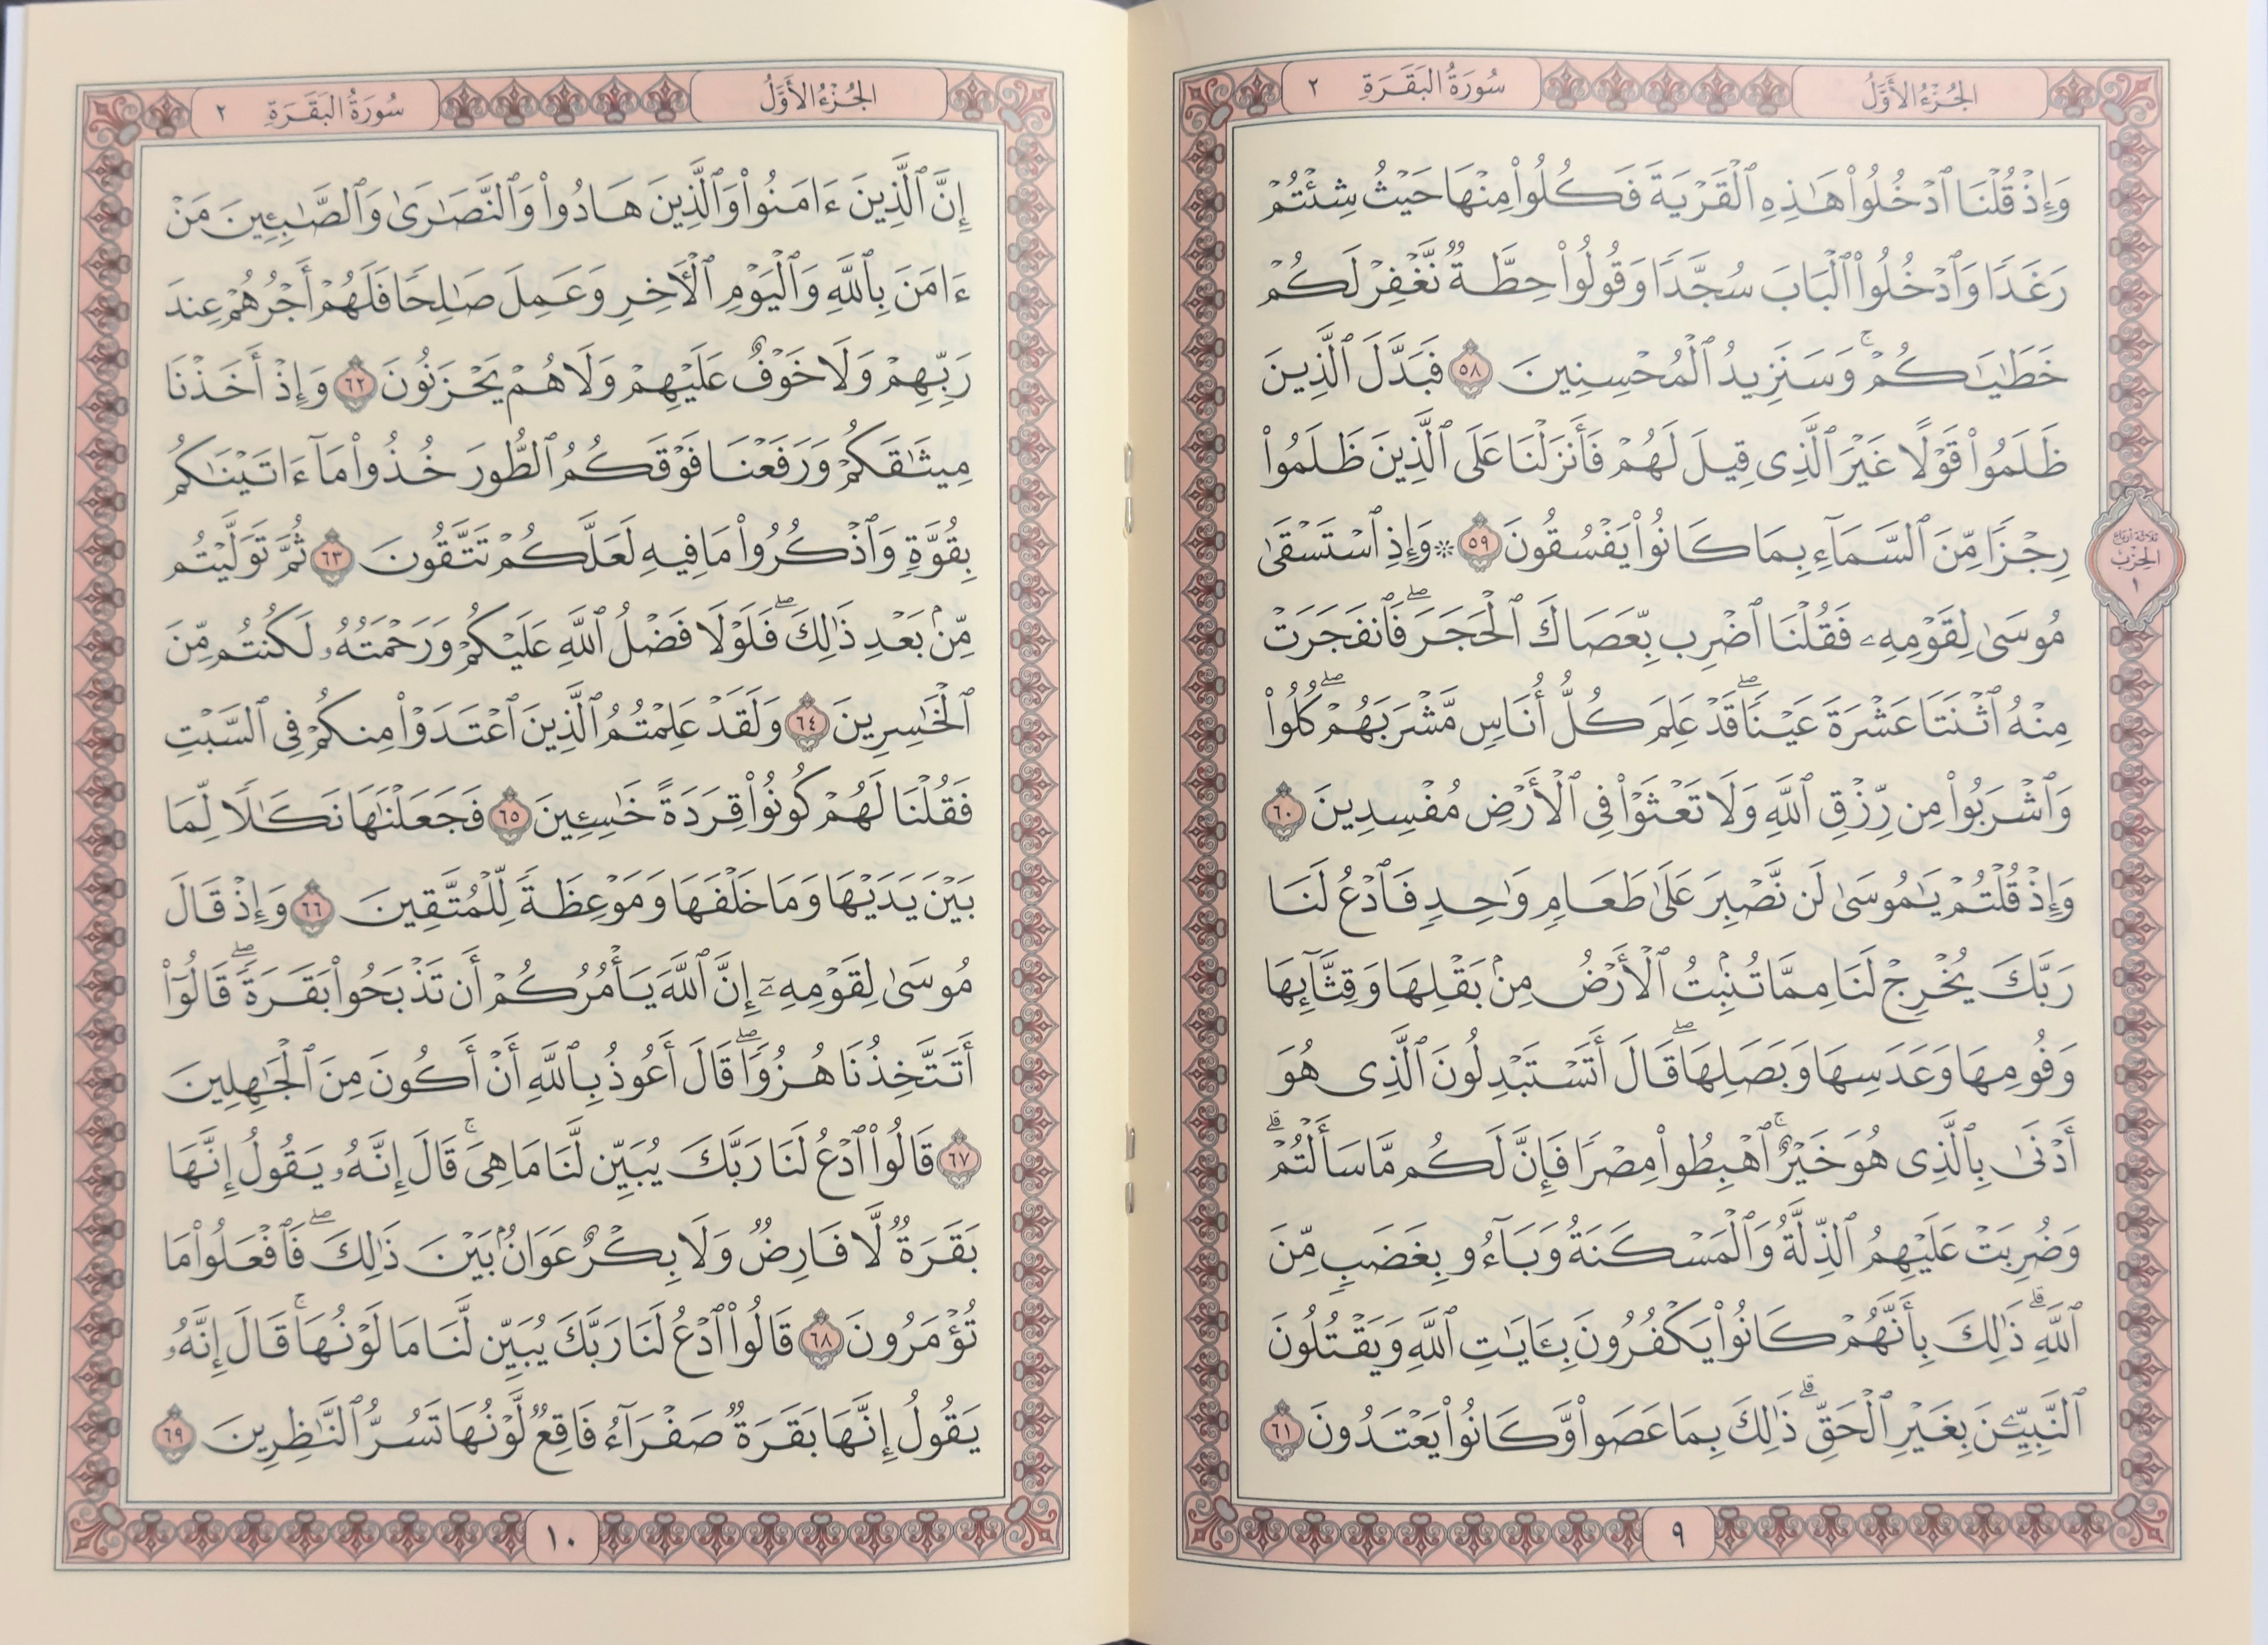 الجزء الأول
سورة البقرة ٢
وَإِذْ قُلْنَا ٱدْخُلُوا۟ هَـٰذِهِ ٱلْقَرْيَةَ فَكُلُوا۟ مِنْهَا حَيْثُ شِئْتُمْ
رَغَدًا وَٱدْخُلُوا۟ ٱلْبَابَ سُجَّدًا وَقُولُوا۟ حِطَّةٌ نَّغْفِرْ لَكُمْ
خَطَـٰيَـٰكُمْ ۚ وَسَنَزِيدُ ٱلْمُحْسِنِينَ ٥٨ فَبَدَّلَ ٱلَّذِينَ
ظَلَمُوا۟ قَوْلًا غَيْرَ ٱلَّذِى قِيلَ لَهُمْ فَأَنزَلْنَا عَلَى ٱلَّذِينَ ظَلَمُوا۟
رِجْزًا مِّنَ ٱلسَّمَآءِ بِمَا كَانُوا۟ يَفْسُقُونَ ٥٩ ۞ وَإِذِ ٱسْتَسْقَىٰ
مُوسَىٰ لِقَوْمِهِۦ فَقُلْنَا ٱضْرِب بِّعَصَاكَ ٱلْحَجَرَ ۖ فَٱنفَجَرَتْ
مِنْهُ ٱثْنَتَا عَشْرَةَ عَيْنًا ۖ قَدْ عَلِمَ كُلُّ أُنَاسٍ مَّشْرَبَهُمْ ۖ كُلُوا۟
وَٱشْرَبُوا۟ مِن رِّزْقِ ٱللَّهِ وَلَا تَعْثَوْا۟ فِى ٱلْأَرْضِ مُفْسِدِينَ ٦٠
وَإِذْ قُلْتُمْ يَـٰمُوسَىٰ لَن نَّصْبِرَ عَلَىٰ طَعَامٍ وَٰحِدٍ فَٱدْعُ لَنَا
رَبَّكَ يُخْرِجْ لَنَا مِمَّا تُنۢبِتُ ٱلْأَرْضُ مِنۢ بَقْلِهَا وَقِثَّآئِهَا
وَفُومِهَا وَعَدَسِهَا وَبَصَلِهَا ۖ قَالَ أَتَسْتَبْدِلُونَ ٱلَّذِى هُوَ
أَدْنَىٰ بِٱلَّذِى هُوَ خَيْرٌ ۚ ٱهْبِطُوا۟ مِصْرًا فَإِنَّ لَكُم مَّا سَأَلْتُمْ ۗ
وَضُرِبَتْ عَلَيْهِمُ ٱلذِّلَّةُ وَٱلْمَسْكَنَةُ وَبَآءُو بِغَضَبٍ مِّنَ
ٱللَّهِ ۗ ذَٰلِكَ بِأَنَّهُمْ كَانُوا۟ يَكْفُرُونَ بِـَٔايَـٰتِ ٱللَّهِ وَيَقْتُلُونَ
ٱلنَّبِيِّـۧنَ بِغَيْرِ ٱلْحَقِّ ۗ ذَٰلِكَ بِمَا عَصَوا۟ وَّكَانُوا۟ يَعْتَدُونَ ٦١
ثلاثة أرباع
الحزب
١
٩
الجزء الأول
سورة البقرة ٢
إِنَّ ٱلَّذِينَ ءَامَنُوا۟ وَٱلَّذِينَ هَادُوا۟ وَٱلنَّصَـٰرَىٰ وَٱلصَّـٰبِـِٔينَ مَنْ
ءَامَنَ بِٱللَّهِ وَٱلْيَوْمِ ٱلْـَٔاخِرِ وَعَمِلَ صَـٰلِحًا فَلَهُمْ أَجْرُهُمْ عِندَ
رَبِّهِمْ وَلَا خَوْفٌ عَلَيْهِمْ وَلَا هُمْ يَحْزَنُونَ ٦٢ وَإِذْ أَخَذْنَا
مِيثَـٰقَكُمْ وَرَفَعْنَا فَوْقَكُمُ ٱلطُّورَ خُذُوا۟ مَآ ءَاتَيْنَـٰكُم
بِقُوَّةٍ وَٱذْكُرُوا۟ مَا فِيهِ لَعَلَّكُمْ تَتَّقُونَ ٦٣ ثُمَّ تَوَلَّيْتُم
مِّنۢ بَعْدِ ذَٰلِكَ ۖ فَلَوْلَا فَضْلُ ٱللَّهِ عَلَيْكُمْ وَرَحْمَتُهُۥ لَكُنتُم مِّنَ
ٱلْخَـٰسِرِينَ ٦٤ وَلَقَدْ عَلِمْتُمُ ٱلَّذِينَ ٱعْتَدَوْا۟ مِنكُمْ فِى ٱلسَّبْتِ
فَقُلْنَا لَهُمْ كُونُوا۟ قِرَدَةً خَـٰسِـِٔينَ ٦٥ فَجَعَلْنَـٰهَا نَكَـٰلًا لِّمَا
بَيْنَ يَدَيْهَا وَمَا خَلْفَهَا وَمَوْعِظَةً لِّلْمُتَّقِينَ ٦٦ وَإِذْ قَالَ
مُوسَىٰ لِقَوْمِهِۦٓ إِنَّ ٱللَّهَ يَأْمُرُكُمْ أَن تَذْبَحُوا۟ بَقَرَةً ۖ قَالُوٓا۟
أَتَتَّخِذُنَا هُزُوًا ۖ قَالَ أَعُوذُ بِٱللَّهِ أَنْ أَكُونَ مِنَ ٱلْجَـٰهِلِينَ
٦٧ قَالُوا۟ ٱدْعُ لَنَا رَبَّكَ يُبَيِّن لَّنَا مَا هِىَ ۚ قَالَ إِنَّهُۥ يَقُولُ إِنَّهَا
بَقَرَةٌ لَّا فَارِضٌ وَلَا بِكْرٌ عَوَانٌۢ بَيْنَ ذَٰلِكَ ۖ فَٱفْعَلُوا۟ مَا
تُؤْمَرُونَ ٦٨ قَالُوا۟ ٱدْعُ لَنَا رَبَّكَ يُبَيِّن لَّنَا مَا لَوْنُهَا ۚ قَالَ إِنَّهُۥ
يَقُولُ إِنَّهَا بَقَرَةٌ صَفْرَآءُ فَاقِعٌ لَّوْنُهَا تَسُرُّ ٱلنَّـٰظِرِينَ ٦٩
١٠